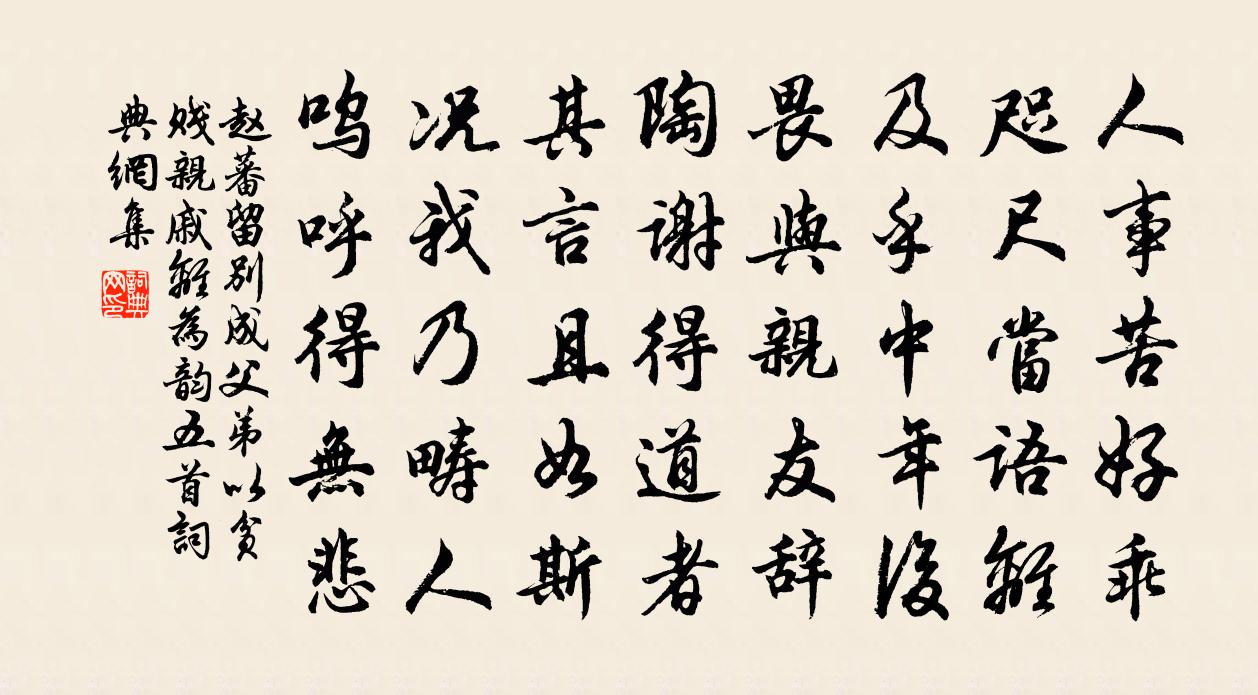 人事苦好乖
咫尺當語離
及乎中年後
畏與親友辞
陶謝得道者
其言且如斯
况我乃疇人
鸣呼得無悲
赵蕃留别成父弟以贫
贱親戚離為韵五首詞
典網集
詞典網印